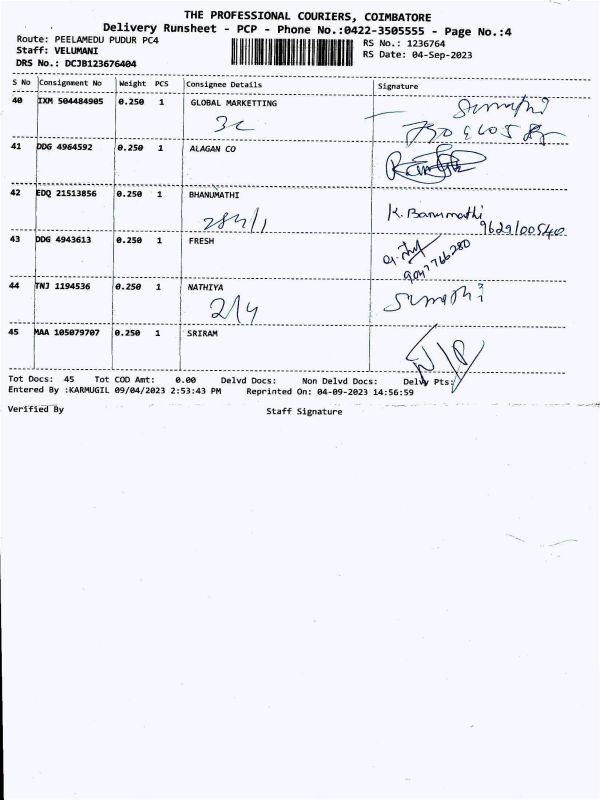 THE PROFESSIONAL COURIERS, COIMBATORE
Delivery Runsheet - PCP - Phone No.:0422-3505555 - Page No.:4
Route: PEELAMEDU PUDUR PC4
RS No.: 1236764
Staff: VELUMANI
RS Date: 04-Sep-2023
DRS No.: DCJB123676404
S No Consignment No Weight PCS Consignee Details Signature
40 IXM 504484905 0.250 1 GLOBAL MARKETTING
3c
41 DDG 4964592 0.250 1 ALAGAN CO
42 EDQ 21513856 0.250 1 BHANUMATHI
284/1 K. Banumathi
9629100540
43 DDG 4943613 0.250 1 FRESH
9047766280
44 TNJ 1194536 0.250 1 NATHIYA
2/4 Sumathi
45 MAA 105079707 0.250 1 SRIRAM
N/P
Tot Docs: 45 Tot COD Amt: 0.00 Delvd Docs: Non Delvd Docs: Delvy Pts:
Entered By :KARMUGIL 09/04/2023 2:53:43 PM Reprinted On: 04-09-2023 14:56:59
Verified By Staff Signature